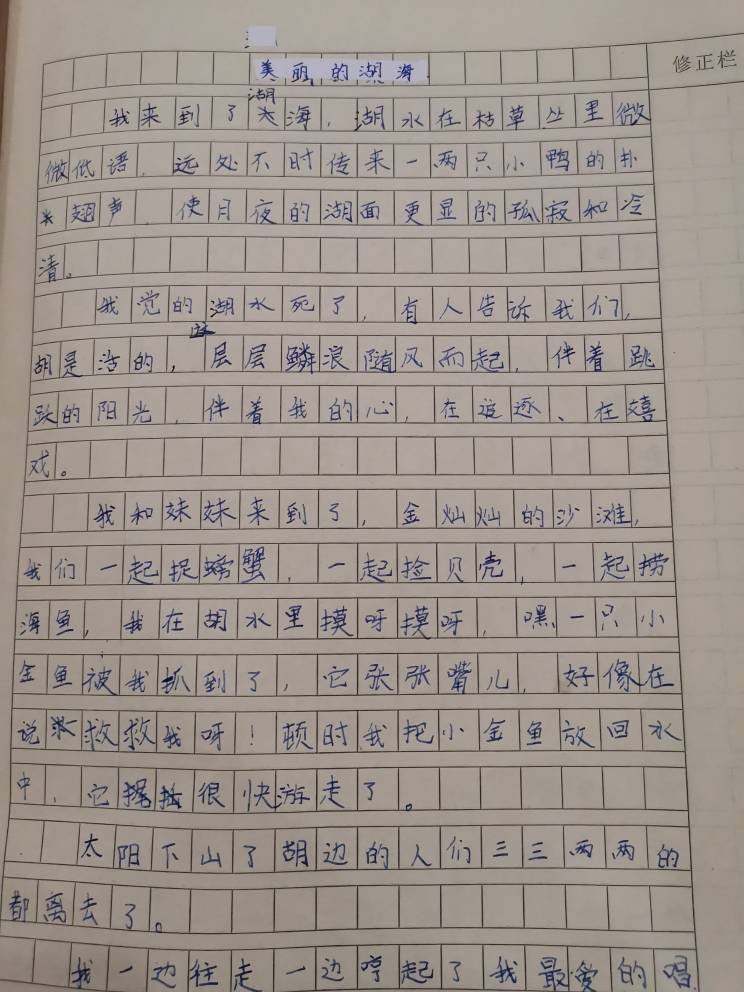 美丽的湖海
修正栏
湖
我来到了大海，湖水在枯草丛里微
微低语，远处不时传来一两只小鸭的扑
翅声，使月夜的湖面更显的孤寂和冷
清。
我觉的湖水死了，有人告诉我们，
胡是活的，层层鳞浪随风而起，伴着跳
跃的阳光，伴着我的心，在追逐、在嬉
戏。
我和妹妹来到了，金灿灿的沙滩，
我们一起捉螃蟹，一起捡贝壳，一起捞
海鱼，我在胡水里摸呀摸呀，嘿一只小
金鱼被我抓到了，它张张嘴儿，好像在
说救救我呀！顿时我把小金鱼放回水
中，它很快游走了。
太阳下山了胡边的人们三三两两的
都离去了。
我一边往走一边哼起了我最爱的唱